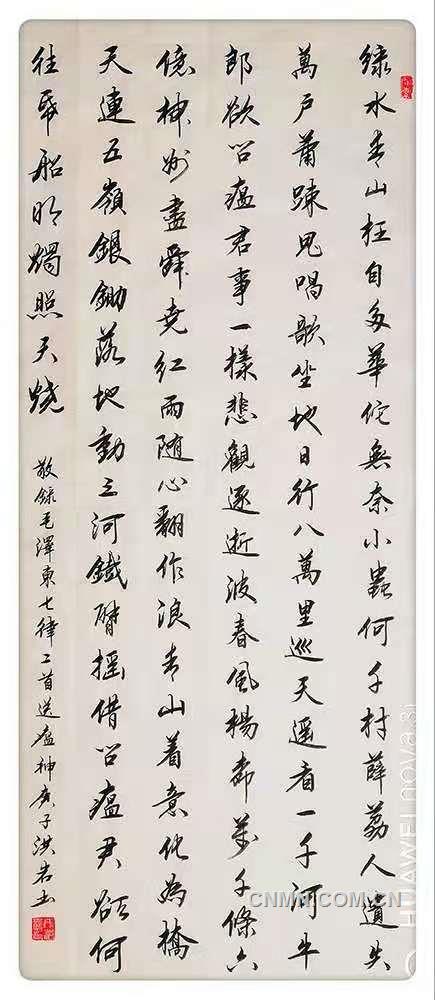 綠水青山枉自多華佗無奈小蟲何千村薜荔人遺失
萬戶蕭踈鬼唱歌坐地日行八萬里巡天遥看一千河牛
郎欲问瘟君事一樣悲觀逐逝波春風楊柳萬千條六
億神州盡舜堯紅雨随心翻作浪青山着意化為橋
天連五嶺銀鋤落地動三河鐵臂摇借问瘟君欲何
往紙船明燭照天燒
敬錄毛澤東七律二首送瘟神庚子洪岩书
CNMN.COM.CN
HUAWEI nova 3i